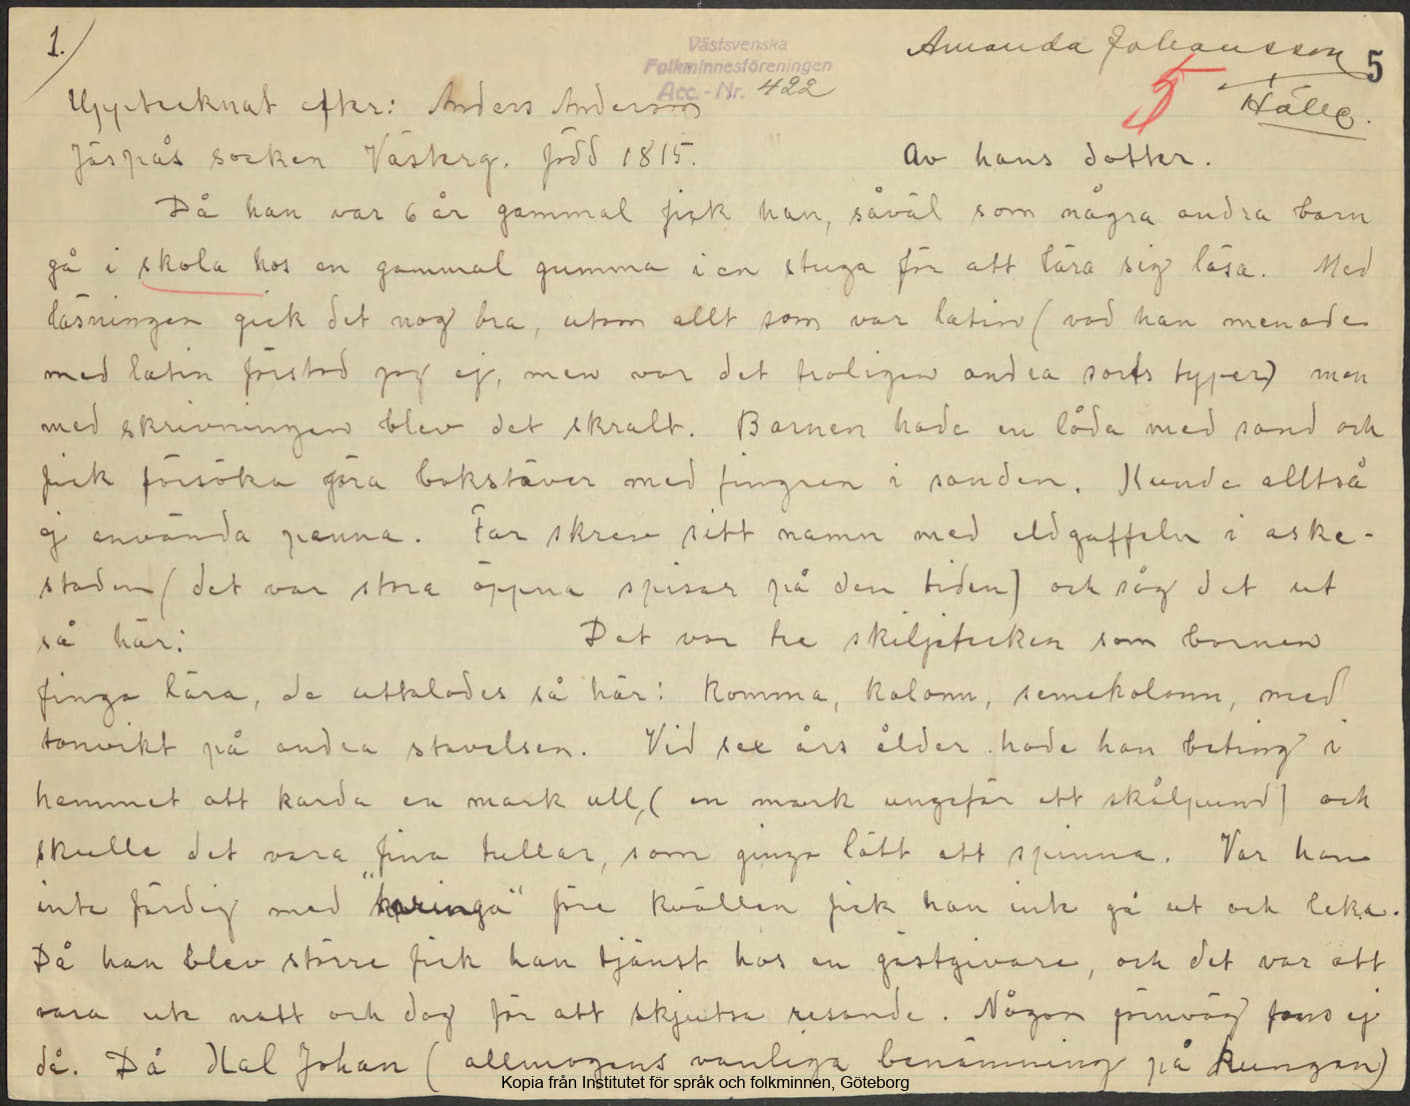 1.
Västsvenska
Folkminnesföreningen
Acc.-Nr. 422
Amanda Johansson
5
5
Hälle.
Upptecknat efter: Anders Anderson
Jäspås socken Västerg. född 1815.
Av hans dotter.
Då han var 6 år gammal fick han, såväl som några andra barn
gå i skola hos en gammal gumma i en stuga för att lära sig läsa. Med
läsningen gick det nog bra, utom allt som var latin (vad han menade
med latin förstod jag ej, men var det troligen andra sorts typer) men
med skrivningen blev det skralt. Barnen hade en låda med sand och
fick försöka göra bokstäver med fingren i sanden. Kunde alltså
ej använda penna. Far skrev sitt namn med eldgaffeln i aske-
staden (det var stora öppna spisar på den tiden) och såg det ut
så här:
Det var tre skiljetecken som barnen
finga lära, de uttalades så här: komma, kolonn, semekolonn, med
tonvikt på andra stavelsen. Vid sex års ålder hade han beting i
hemmet att karda en mark ull, (en mark ungefär ett skålpund) och
skulle det vara fina tullar, som ginga lätt att spinna. Var han
inte färdig med "karinga" före kvällen fick han inte gå ut och leka.
Då han blev större fick han tjänst hos en gästgivare, och det var att
vara ute natt och dag för att skjutsa resande. Någon järnväg fans ej
då. Då Kal Johan (allmogens vanliga benämning på kungen)
Kopia från Institutet för språk och folkminnen, Göteborg